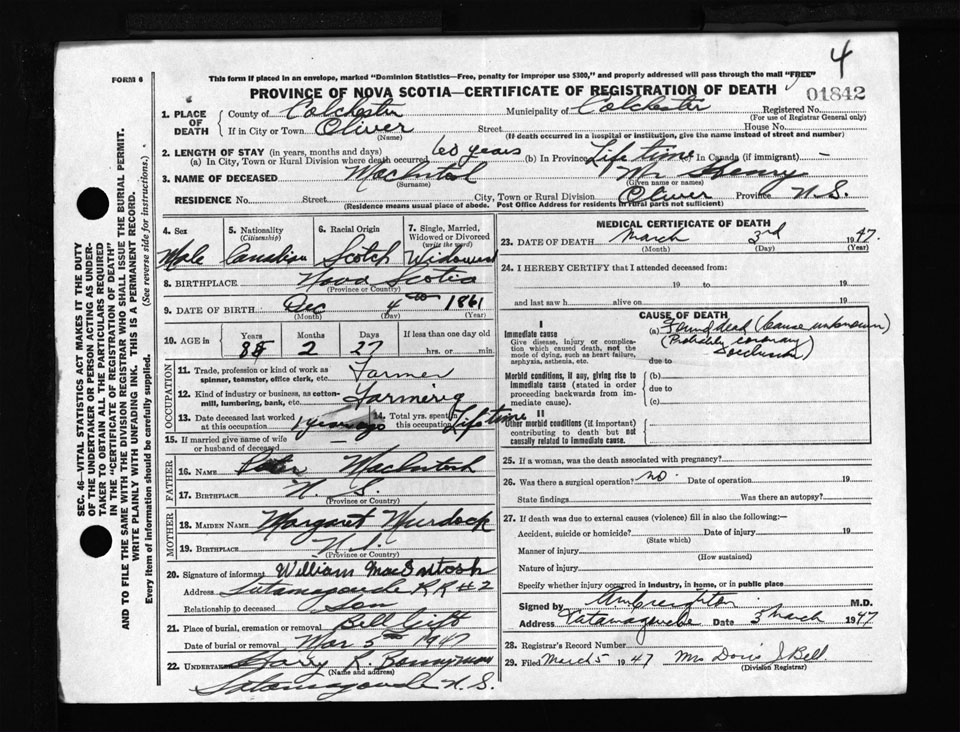 4
FORM 6
This form if placed in an envelope, marked "Dominion Statistics—Free, penalty for improper use $300," and properly addressed will pass through the mail "FREE"
PROVINCE OF NOVA SCOTIA—CERTIFICATE OF REGISTRATION OF DEATH
01842
1. PLACE OF DEATH County of Colchester Municipality of Colchester Registered No.
(For use of Registrar General only)
If in City or Town Oliver Street House No.
(Name) (If death occurred in a hospital or institution, give the name instead of street and number)
2. LENGTH OF STAY (in years, months and days)
(a) In City, Town or Rural Division where death occurred 60 years (b) In Province Life time In Canada (if immigrant) -
3. NAME OF DECEASED MacIntosh Mr Henry
(Surname) (Given name or names)
RESIDENCE No. Street City, Town or Rural Division Oliver Province N.S.
(Residence means usual place of abode. Post Office Address for residents in rural parts not sufficient)
4. Sex 5. Nationality (Citizenship) 6. Racial Origin 7. Single, Married, Widowed or Divorced (write the word)
Male Canadian Scotch Widowed
8. BIRTHPLACE Nova Scotia
(Province or Country)
9. DATE OF BIRTH Dec 4th 1861
(Month) (Day) (Year)
10. AGE in Years Months Days If less than one day old
85 2 27 hrs. or min.
OCCUPATION
11. Trade, profession or kind of work as spinner, teamster, office clerk, etc. Farmer
12. Kind of industry or business, as cotton-mill, lumbering, bank, etc. Farming
13. Date deceased last worked at this occupation 1 year ago 14. Total yrs. spent in this occupation Life time
15. If married give name of wife or husband of deceased
FATHER
16. Name Peter MacIntosh
17. Birthplace N. S.
(Province or Country)
MOTHER
18. MAIDEN NAME Margaret Murdock
19. BIRTHPLACE N. S.
(Province or Country)
20. Signature of informant William MacIntosh
Address Tatamagouche R R #2
Relationship to deceased Son
21. Place of burial, cremation or removal
Date of burial or removal Mar 5th 1947
22. UNDERTAKER Harry R. Bonnyman
(Name and address)
Tatamagouche N. S.
MEDICAL CERTIFICATE OF DEATH
23. DATE OF DEATH March 3rd 1947
(Month) (Day) (Year)
24. I HEREBY CERTIFY that I attended deceased from:
19 to 19
and last saw h alive on 19
CAUSE OF DEATH
I
Immediate cause (a) Found dead (Cause unknown)
Give disease, injury or complication which caused death, not the mode of dying, such as heart failure, asphyxia, asthenia, etc. (Probably coronary occlusion)
due to
Morbid conditions, if any, giving rise to immediate cause (stated in order proceeding backwards from immediate cause). (b)
due to
(c)
II
Other morbid conditions (if important) contributing to death but not causally related to immediate cause.
25. If a woman, was the death associated with pregnancy?
26. Was there a surgical operation? no. Date of operation 19
State findings Was there an autopsy?
27. If death was due to external causes (violence) fill in also the following:—
Accident, suicide or homicide? Date of injury 19
(State which)
Manner of injury
(How sustained)
Nature of injury
Specify whether injury occurred in industry, in home, or in public place
Signed by Creighton M.D.
Address Tatamagouche Date 3 March 1947
28. Registrar's Record Number
29. Filed March 5 1947 Mrs Doris J Bell
(Division Registrar)
SEC. 46—VITAL STATISTICS ACT MAKES IT THE DUTY
OF THE UNDERTAKER OR PERSON ACTING AS UNDER-
TAKER TO OBTAIN ALL THE PARTICULARS REQUIRED
IN THE "CERTIFICATE OF REGISTRATION OF DEATH"
AND TO FILE THE SAME WITH THE DIVISION REGISTRAR WHO SHALL ISSUE THE BURIAL PERMIT.
WRITE PLAINLY WITH UNFADING INK. THIS IS A PERMANENT RECORD.
Every item of information should be carefully supplied. (See reverse side for instructions.)